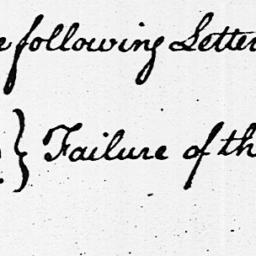 e following Letter
} Failure of th